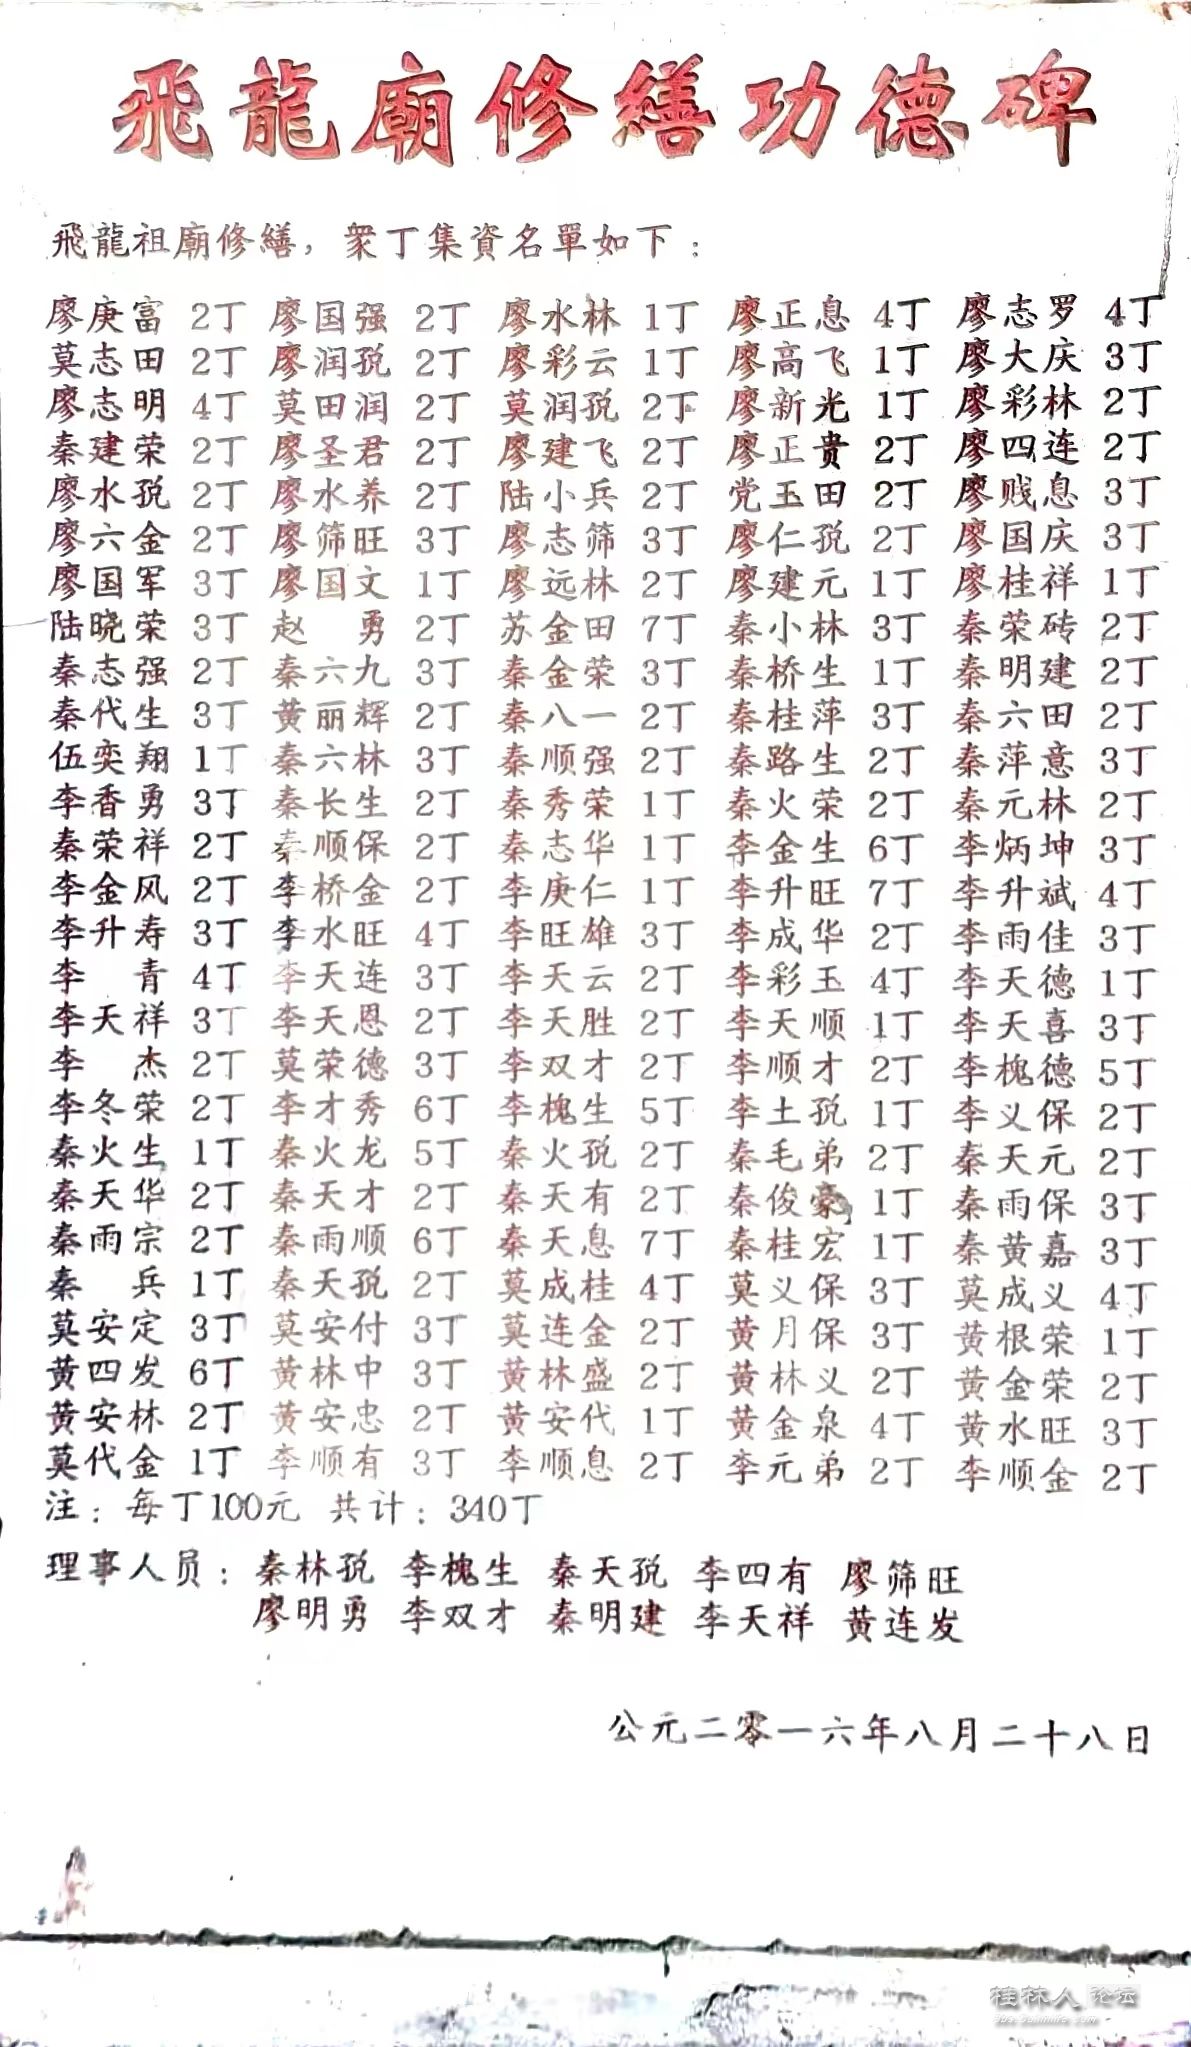 飛龍廟修繕功德碑
飛龍祖廟修繕，衆丁集資名單如下：
廖庚富 2丁 廖国强 2丁 廖水林 1丁 廖正息 4丁 廖志罗 4丁
莫志田 2丁 廖润孜 2丁 廖彩云 1丁 廖高飞 1丁 廖大庆 3丁
廖志明 4丁 莫田润 2丁 莫润孜 2丁 廖新光 1丁 廖彩林 2丁
秦建荣 2丁 廖圣君 2丁 廖建飞 2丁 廖正贵 2丁 廖四连 2丁
廖水孜 2丁 廖水养 2丁 陆小兵 2丁 党玉田 2丁 廖贱息 3丁
廖六金 2丁 廖筛旺 3丁 廖志筛 3丁 廖仁孜 2丁 廖国庆 3丁
廖国军 3丁 廖国文 1丁 廖远林 2丁 廖建元 1丁 廖桂祥 1丁
陆晓荣 3丁 赵勇 2丁 苏金田 7丁 秦小林 3丁 秦荣砖 2丁
秦志强 2丁 秦六九 3丁 秦金荣 3丁 秦桥生 1丁 秦明建 2丁
秦代生 3丁 黄丽辉 2丁 秦八一 2丁 秦桂萍 3丁 秦六田 2丁
伍奕翔 1丁 秦六林 3丁 秦顺强 2丁 秦路生 2丁 秦萍意 3丁
李香勇 3丁 秦长生 2丁 秦秀荣 1丁 秦火荣 2丁 秦元林 2丁
秦荣祥 2丁 秦顺保 2丁 秦志华 1丁 李金生 6丁 李炳坤 3丁
李金风 2丁 李桥金 2丁 李庚仁 1丁 李升旺 7丁 李升斌 4丁
李升寿 3丁 李水旺 4丁 李旺雄 3丁 李成华 2丁 李雨佳 3丁
李青 4丁 李天连 3丁 李天云 2丁 李彩玉 4丁 李天德 1丁
李天祥 3丁 李天恩 2丁 李天胜 2丁 李天顺 1丁 李天喜 3丁
李杰 2丁 莫荣德 3丁 李双才 2丁 李顺才 2丁 李槐德 5丁
李冬荣 2丁 李才秀 6丁 李槐生 5丁 李土孜 1丁 李义保 2丁
秦火生 1丁 秦火龙 5丁 秦火孜 2丁 秦毛弟 2丁 秦天元 2丁
秦天华 2丁 秦天才 2丁 秦天有 2丁 秦俊豪 1丁 秦雨保 3丁
秦雨宗 2丁 秦雨顺 6丁 秦天息 7丁 秦桂宏 1丁 秦黄嘉 3丁
秦兵 1丁 秦天孜 2丁 莫成桂 4丁 莫义保 3丁 莫成义 4丁
莫安定 3丁 莫安付 3丁 莫连金 2丁 黄月保 3丁 黄根荣 1丁
黄四发 6丁 黄林中 3丁 黄林盛 2丁 黄林义 2丁 黄金荣 2丁
黄安林 2丁 黄安忠 2丁 黄安代 1丁 黄金泉 4丁 黄水旺 3丁
莫代金 1丁 李顺有 3丁 李顺息 2丁 李元弟 2丁 李顺金 2丁
注：每丁100元 共计：340丁
理事人员：秦林孜 李槐生 秦天孜 李四有 廖筛旺
廖明勇 李双才 秦明建 李天祥 黄连发
公元二零一六年八月二十八日
桂林人论坛